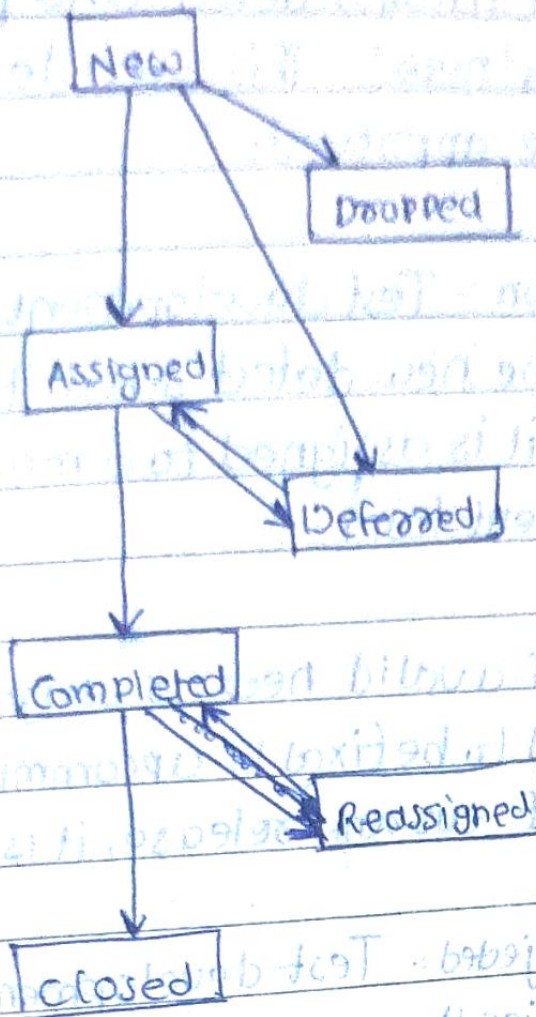 New
Dropped
Assigned
Deferred
Completed
Reassigned
Closed